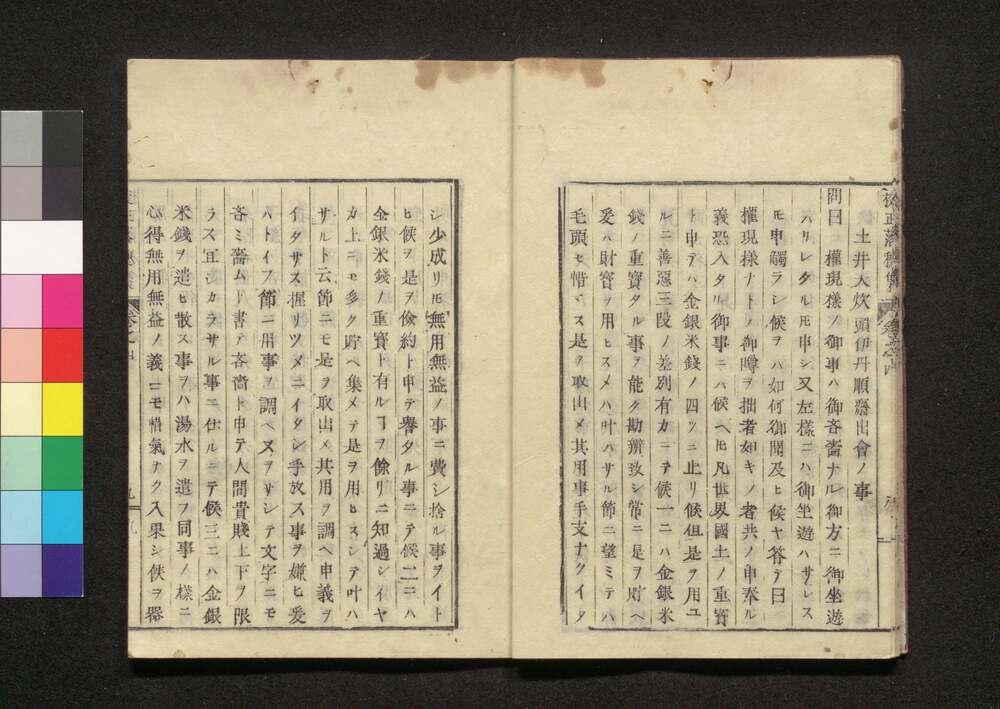 土井大炊頭伊丹順齋出會ノ事
問曰　權現樣ノ御事ハ御吝嗇ナル御方ニ御坐遊
ハリレタルモ申シ又左樣ニハ御坐遊ハサレス
モ申觸ラシ候ヲハ如何御聞及ヒ候ヤ答テ曰
權現樣ナトノ御噂ヲ拙者如キノ者共ノ申奉ル
義恐入タル御事ニハ候ヘモ凡世界國土ノ重寳
ト申テハ金銀米錢ノ四ツニ止リ候但是ヲ用ユ
ルニ善惡三段ノ差別有カニテ候一ニハ金銀米
錢ノ重寳タル事ヲ能ク勘辨致シ常ニ是ヲ貯ヘ
爰ハ財寳ヲ用ヒスメハ叶ハサル節ニ望ミテハ
毛頭モ惜マス是ヲ取出メ其用事手支ナクイタ
シ少成リモ無用無益ノ事ニ費シ捨ル事ヲイト
ヒ候ヲ是ヲ儉約ト申テ譽タル事ニテ候二ニハ
金銀米錢ノ重寳ト有ルヿヲ餘リニ知過シイヤ
カ上ニモ多ク貯ヘ集メテ是ヲ用ヒスシテ叶ハ
サルト云節ニモ是ヲ取出メ其用ヲ調ヘ申義ヲ
イタサス握リツメニイタシ手放ス事ヲ嫌ヒ爰
ハトイフ節ニ用事ヲ調ヘス又ヲサシテ文字ニモ
吝ミ嗇ムト書テ吝嗇ト申テ人間貴賤上下ヲ限
ラス宜シカラサル事ニ仕ルニテ候三ニハ金銀
米錢ヲ遣ヒ散ス事ヲハ湯水ヲ遣フ同事ノ樣ニ
心得無用無益ノ義ニモ惜氣ナク入果シ候ヲ器
卷之四
九